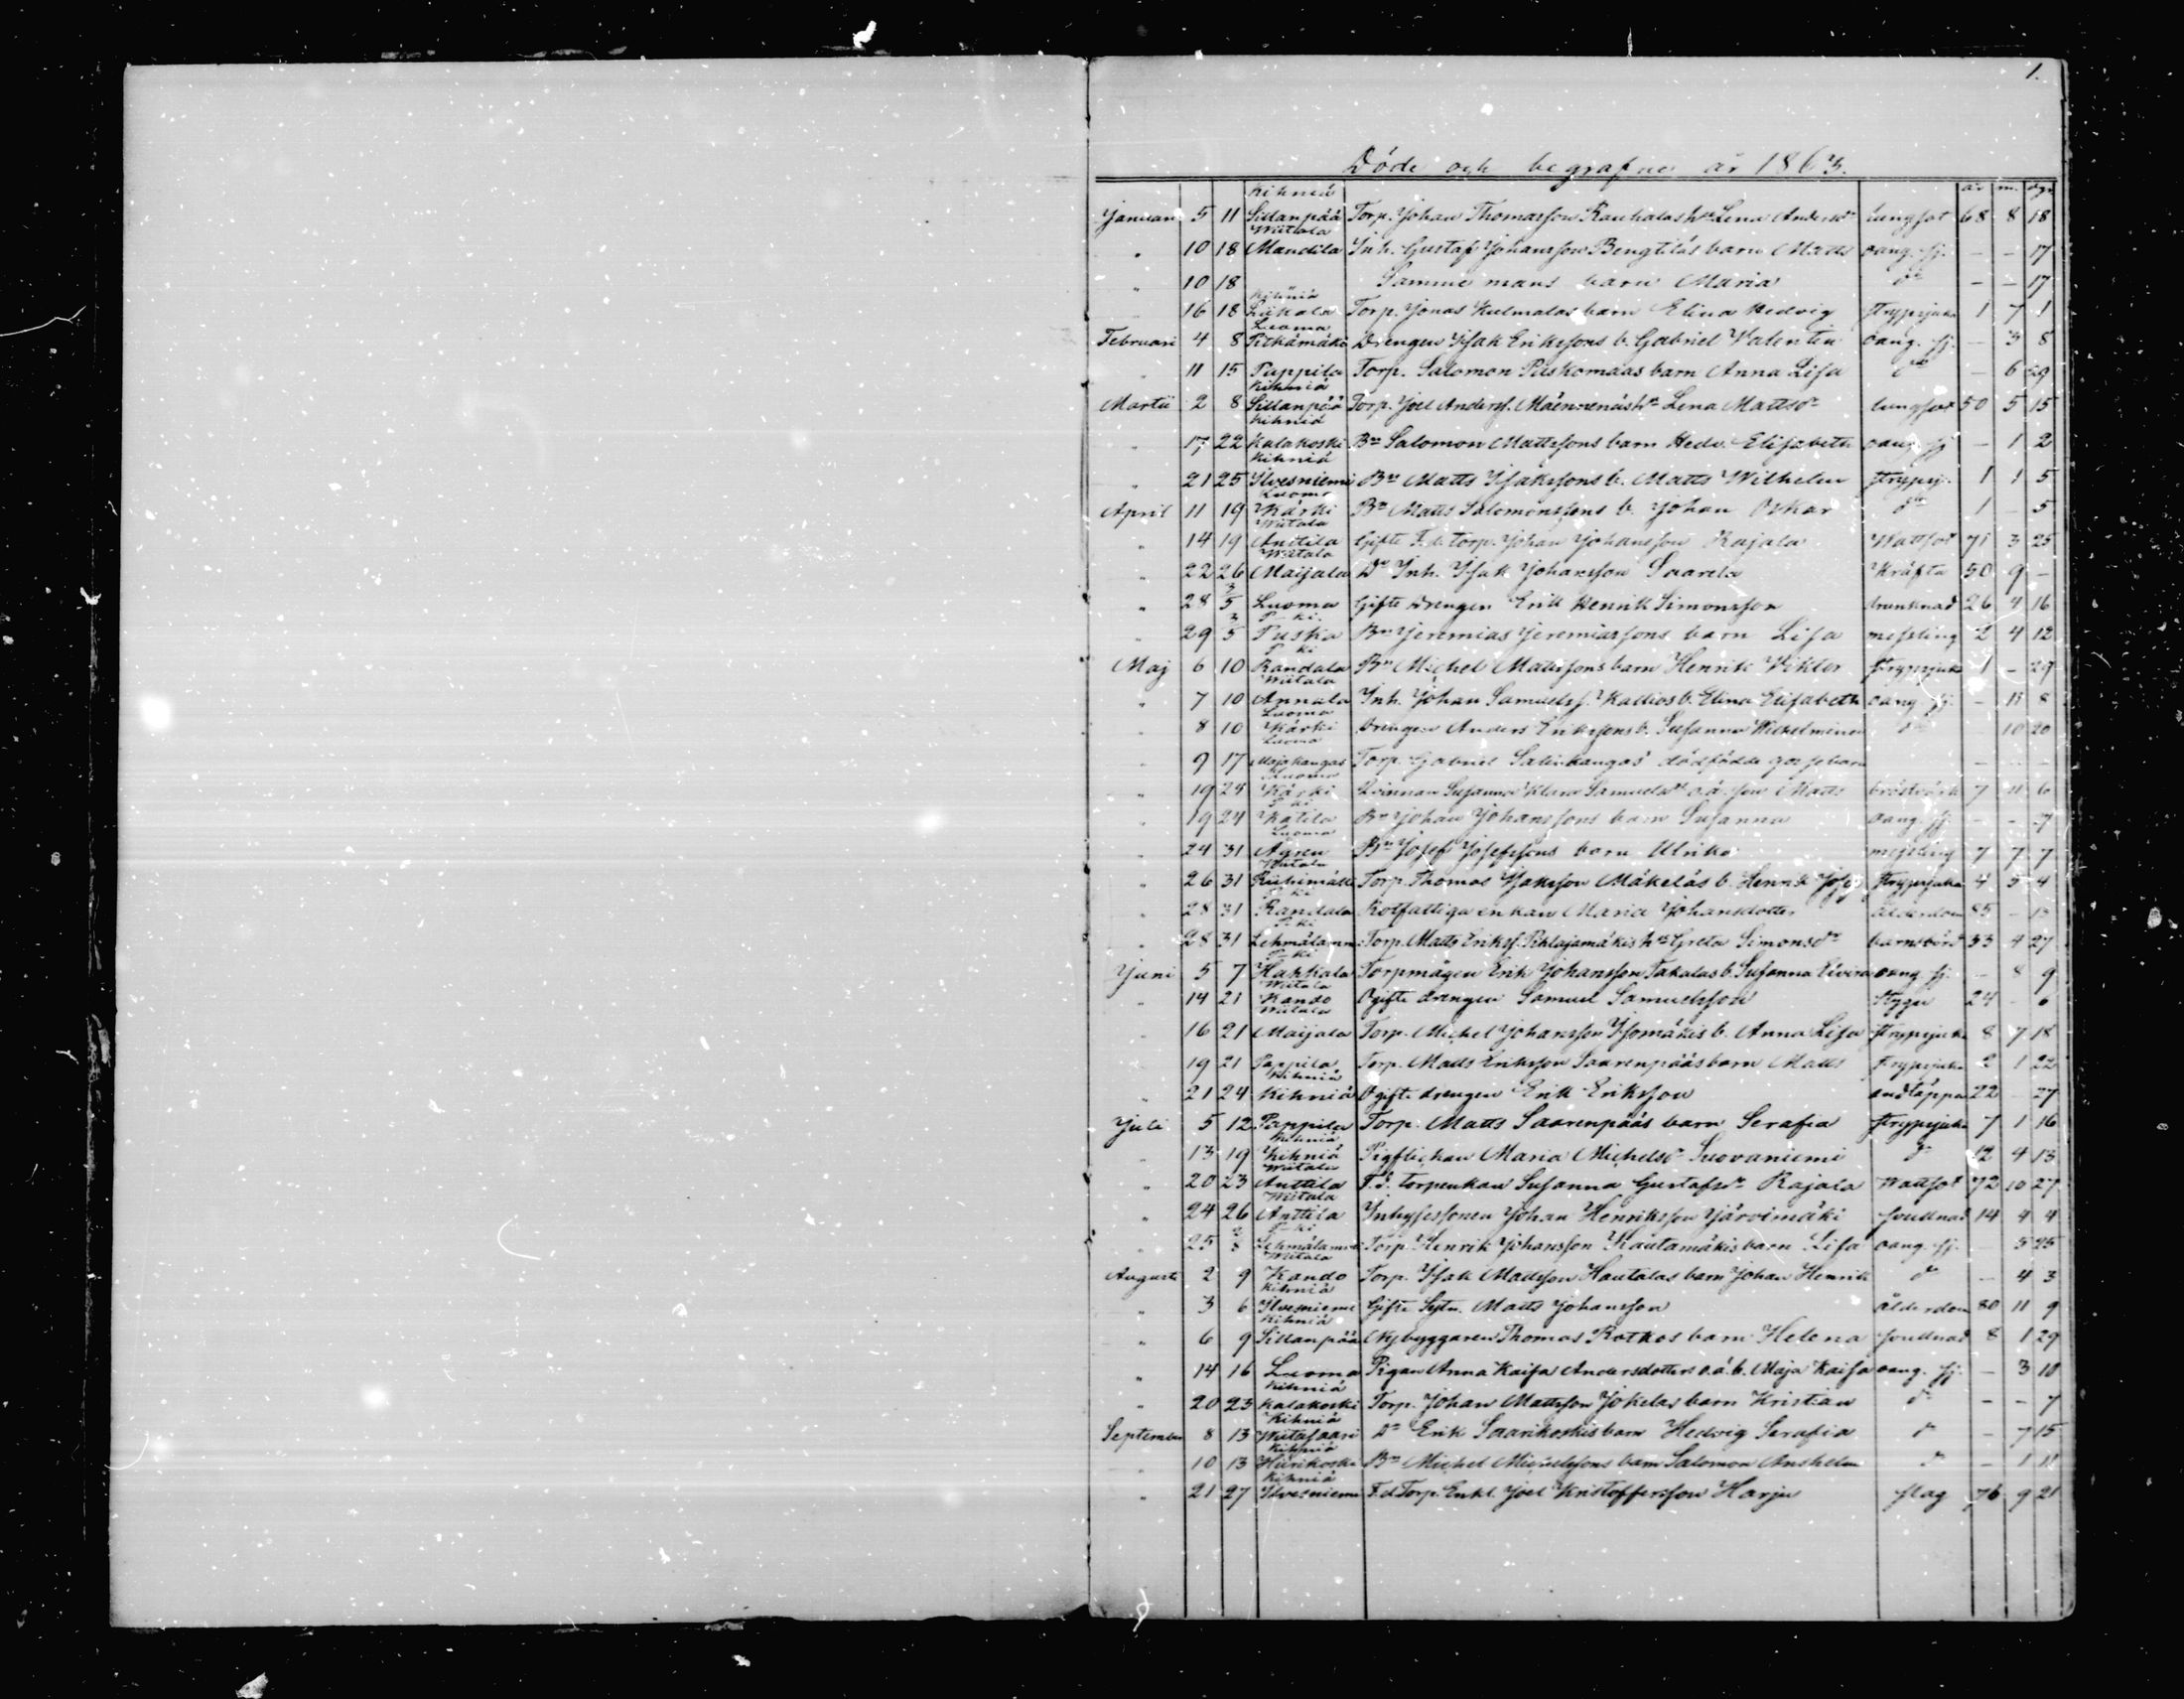 1.
Döde och begrafne år 1863.
år m. dgr
Januari 5 11 Kihniä Sillanpää Torp. Johan Thomasson Rauhalas hu Lena Andersdr lungsot 68 8 18
" 10 18 Wiitala Mandila Inh. Gustaf Johansson Bengtiläs barn Matts oang. sj. - - 17
" 10 18 Samme mans barn Maria do - - 17
" 16 18 Kihniä Liikala Torp. Jonas Kulmalas barn Elina Hedvig strypsjuka 1 7 1
Februari 4 8 Luoma Pitkämäki Drengen Isak Erikssons b. Gabriel Valentin oang. sj. - 3 8
" 11 15 Pappila Torp. Salomon barn Anna Lisa do - 6 29
Martii 2 8 Kihniä Sillanpää Torp. Joel Anderss. Mäenpenäs hu Lena Mattsdr lungsot 50 5 15
" 17 22 Kihniä Kalakoski Bn Salomon Mattssons barn Hedv. Elisabeth oang. sj - 1 2
" 21 25 Kihniä Ilvesniemi Bn Matts Isakssons b. Matts Wilhelm strypsj. 1 1 5
April 11 19 Luoma Kärki Bn Matts Salomonssons b. Johan Oskar do 1 - 5
" 14 19 Wiitala Anttila Gifte F.d. torp. Johan Johansson Rajala Wattsot 71 3 25
" 22 26 Wiitala Maijala Do Inh. Isak Johansson Saarela Kräfta 50 9 -
" 28 3/5 Luoma Gifte Drengen Erik Henrik Simonsson drunknad 26 4 16
" 29 3/5 P-ki. Puska Bn Jeremias Jeremiassons barn Lisa messling 2 4 12
Maj 6 10 P-ki Randala Bn Michel Mattssons barn Henrik Viktor strypsjuka 1 - 29
" 7 10 Wiitala Annala Inh. Johan Samuelss. Kallios b. Elina Elisabeth oang. sj. - 11 8
" 8 10 Luoma Kärki Drengen Anders Erikssons b. Susanna Wilhelmina do 10 20
" 9 17 Luoma Majakangas Torp. Gabriel Salinkangas' dödfödde gossebarn - - -
" 19 24 Luoma Kärki Qvinnan Susanna Klara Samuelsdr o.ä. son Matts bröstvärk 7 11 6
" 19 24 P-ki Katila Bn Johan Johanssons barn Susanna oang. sj. - - 7
" 24 31 Luoma Ågren Bn Josef Josefssons barn Ulrika messling 7 7 7
" 26 31 Wiitala Riihimäki Torp. Thomas Isaksson Mäkeläs b. Henrik Josef strypsjuka 4 5 4
" 28 31 P-ki Randala Rotfattiga enkan Maria Johansdotter ålderdom 85 - 13
" 28 31 P-ki Lehmälamm. Torp. Matts Erikss. Pihlajamäkis hu Greta Simonsdr barnsbörd 33 4 27
Juni 5 7 P-ki Hakkala Torpmågen Erik Johansson Takalas b. Susanna Elvira oang. sj. - 8 9
" 14 21 Wiitala Kando Ogifte drengen Samuel Samuelsson Stygn 24 - 6
" 16 21 Wiitala Maijala Torp. Michel Johansson Isomäkis b. Anna Lisa strypsjuka 8 7 18
" 19 21 Pappila Torp. Matts Eriksson Saarenpääs barn Matts strypsjuka 2 1 22
" 21 24 Kihniä Kihniä Ogifte drengen Erik Eriksson andtäppa 22 - 27
Juli 5 12 Pappila Torp. Matts Saarenpääs barn Serafia strypsjuka 7 1 16
" 13 19 Kihniä Kihniä Pigflickan Maria Michelsdr Suovaniemi do 12 4 13
" 20 23 Wiitala Anttila F.d. torpenkan Susanna Gustafsdr Rajala Wattsot 72 10 27
" 24 26 Wiitala Anttila Inhysessonen Johan Henriksson Järvimäki svullnad 14 4 4
" 25 2/8 P-ki Lehmälammi Torp. Henrik Johansson Rautamäkis barn Lisa oang. sj. 5 25
Augusti 2 9 Wiitala Kando Torp. Isak Mattsson Hautalas barn Johan Henrik do - 4 3
" 3 6 Kihniä Ilvesniemi Gifte Sytn. Matts Johansson ålderdom 80 11 9
" 6 9 Kihniä Sillanpää Nybyggaren Thomas Rotkos barn Helena svullnad 8 1 29
" 14 16 Luoma Pigan Anna Kaisa Andersdotters o.ä. b. Maja Kaisa oang. sj. - 3 10
" 20 23 Kihniä Kalakoski Torp. Johan Mattsson Jokelas barn Kristian do - - 7
September 8 13 Kihniä Wiitasaari Do Erik Saarikoskis barn Hedvig Serafia do - 7 15
" 10 13 Kihniä Hiirikoski Bn Michel Michelssons barn Salomon Anshelm do - 1 11
" 21 27 Kihniä Ilvesniemi F.d. Torp. Enkl. Joel Kristoffersson Harju slag 76 9 21